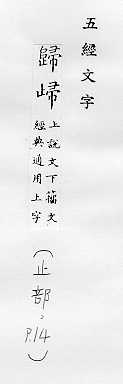 五經文字
歸㱕
上說文下籀文
經典通用上字
(止部,P.14)